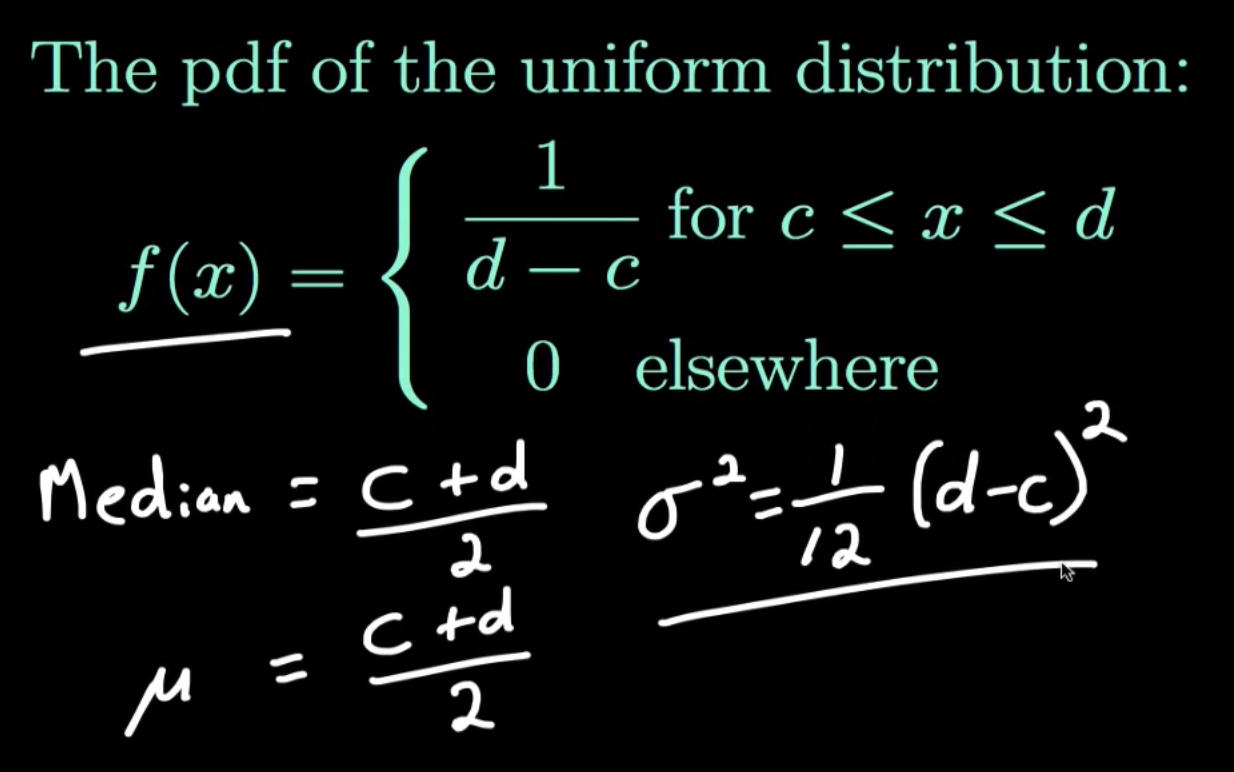 The pdf of the uniform distribution:
f(x) = { 1/(d − c) for c ≤ x ≤ d
0 elsewhere
Median = (c + d)/2
σ² = 1/12 (d-c)²
μ = (c + d)/2